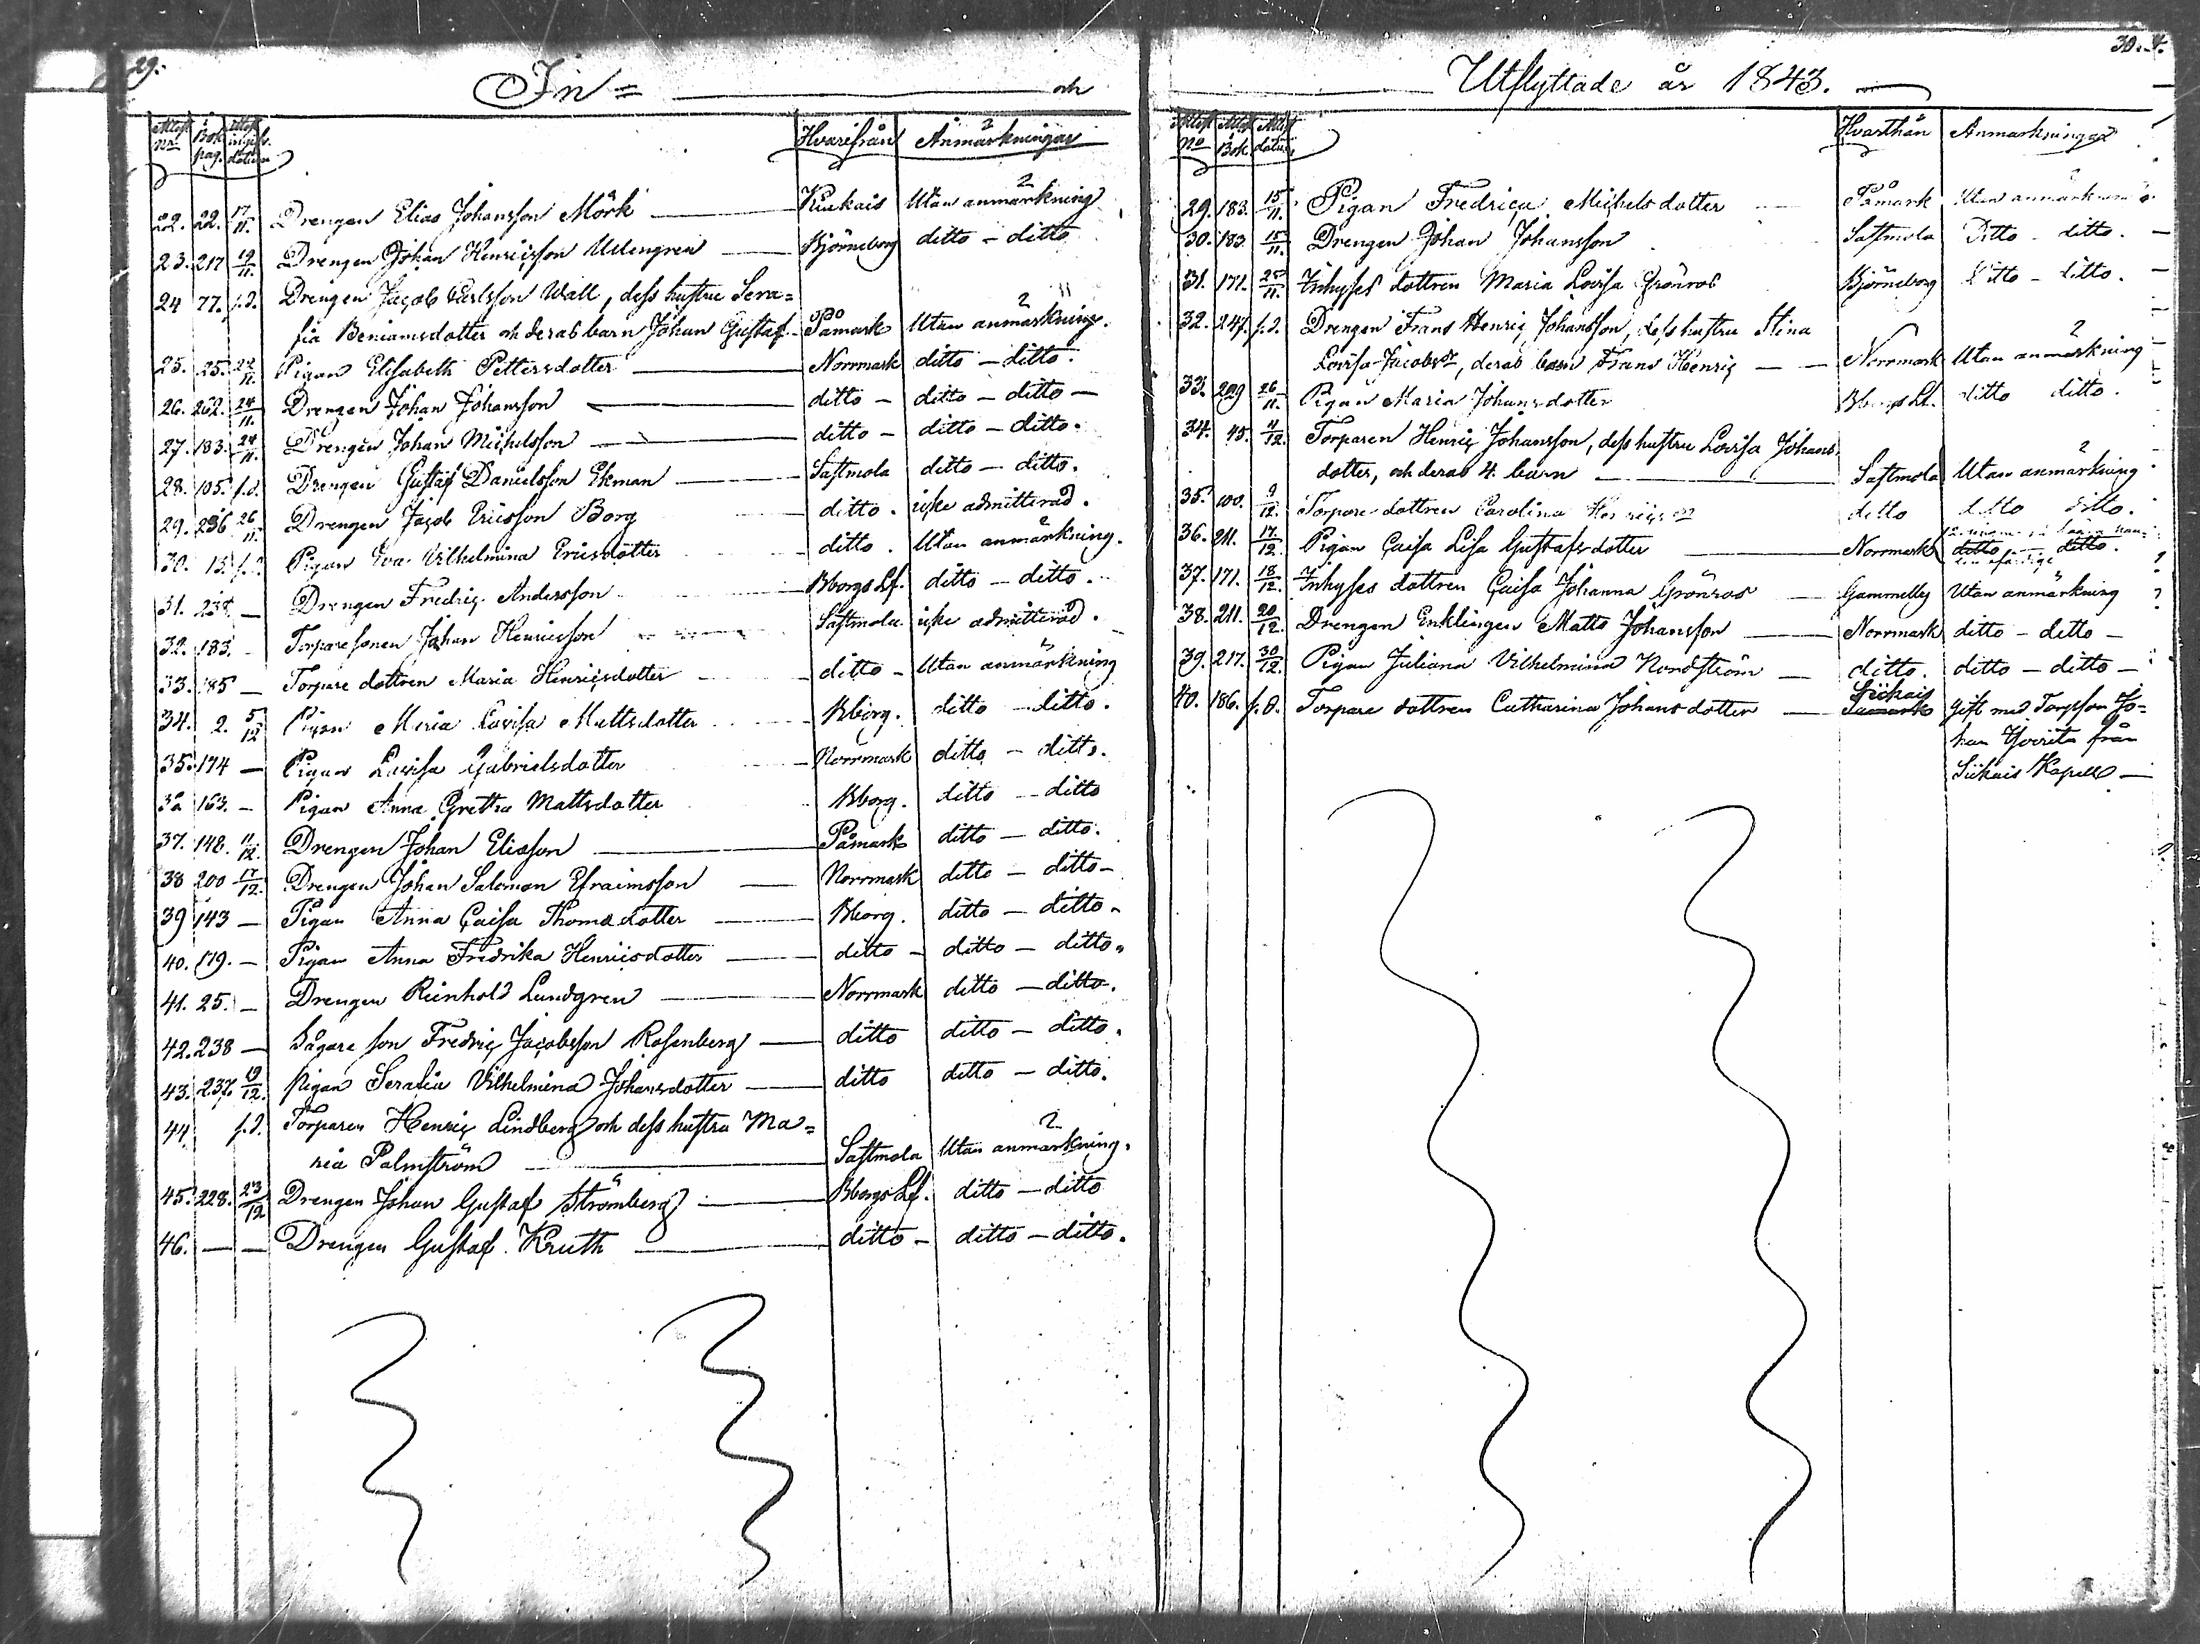 29.
In = och
Attest nr. Bok pag. Attest ingifv. datum Hvarifrån Anmärkningar
22. 22. 17/11. Drengen Elias Johansson Mörk Kiukais Utan anmärkning
23. 217 19/11. Drengen Johan Henricsson Ullengren Björneborg ditto - ditto
24 77. s.d. Drengen Jacob Carlsson Wall, dess hustru Sera=
fia Beniamsdotter och deras barn Johan Gustaf Påmark Utan anmärkning.
25. 25. 22/11. Pigan Elisabeth Pettersdotter Norrmark ditto - ditto.
26. 262. 24/11. Drengen Johan Johansson ditto - ditto - ditto -
27. 183. 24/11. Drengen Johan Michelsson ditto - ditto - ditto.
28. 105. s.d. Drengen Gustaf Danielsson Ekman Sastmola ditto - ditto.
29. 236 26/11. Drengen Jacob Ericsson Borg ditto. icke admitterad.
30. 13. s.d. Pigan Eva Vilhelmina Ericsdotter ditto. Utan anmärkning.
31. 238. - Drengen Fredric Andersson Bborgs Lf. ditto - ditto.
32. 183. - Torparesonen Johan Henricsson Sastmola icke admitterad.
33. 185 - Torpare dottren Maria Henricsdotter ditto - Utan anmärkning
34. 2. 5/12 Pigan Maria Lovisa Mattsdotter Bborg. ditto - ditto.
35. 174 - Pigan Lovisa Gabrielsdotter Norrmark ditto - ditto.
36 163. - Pigan Anna Gretha Mattsdotter Bborg. ditto - ditto
37. 148. 11/12. Drengen Johan Eliasson Påmark ditto - ditto.
38 200 17/12. Drengen Johan Salomon Efraimsson Norrmark ditto - ditto -
39 143 - Pigan Anna Caisa Thomasdotter Bborg. ditto - ditto -
40. 179. - Pigan Anna Fredrika Henricsdotter ditto - ditto - ditto.
41. 25. - Drengen Reinhold Lundgren Norrmark ditto - ditto.
42. 238 - Sågare son Fredric Jacobsson Rosenberg ditto ditto - ditto.
43. 237. 19/12. pigan Serafia Vilhelmina Johansdotter ditto ditto - ditto.
44. s.d. Torparen Henric Lindberg och dess hustru Ma=
ria Palmström Sastmola Utan anmärkning.
45. 228. 23/12 Drengen Johan Gustaf Strömberg Bborgs Lf. ditto - ditto
46. - - Drengen Gustaf Kruth ditto - ditto - ditto.
30.
Utflyttade år 1843.
Attest No Attest Bok Attest datum Hvarthän Anmärkningar
29. 183. 15/11. Pigan Fredrica Michelsdotter Påmark Utan anmärkning
30. 183 15/11. Drengen Johan Johansson Sastmola Ditto - ditto.
31. 171. 25/11. Inhyses dottren Maria Lovisa Grönroos Björneborg Ditto - ditto.
32. 247. s.d. Drengen Frans Henric Johansson, dess hustru Stina
Lovisa Jacobsdr, deras barn Frans Henric Norrmark Utan anmärkning
33. 229 26/11. Pigan Maria Johansdotter Bborgs Lf. ditto ditto.
34. 45. 4/12 Torparen Henric Johansson, dess hustru Lovisa Johans
dotter, och deras 4 barn Sastmola Utan anmärkning
35. 100. 9/12. Torpare dottren Carolina ditto ditto ditto.
36. 211. 17/12. Pigan Caisa Lisa Gustafsdotter Norrmark ditto - ditto.
37. 171. 18/12. Inhyses dottren Caisa Johanna Grönroos Gammelby Utan anmärkning
38. 211. 20/12. Drengen Enklingen Matts Johansson Norrmark ditto - ditto -
39. 217. 30/12. Pigan Juliana Vilhelmina Nordström ditto. ditto - ditto -
40. 186. s.d. Torpare dottren Catharina Johansdotter Påmark Siikais Gift med Torpson Jo=
han från
Siikais Kapell -